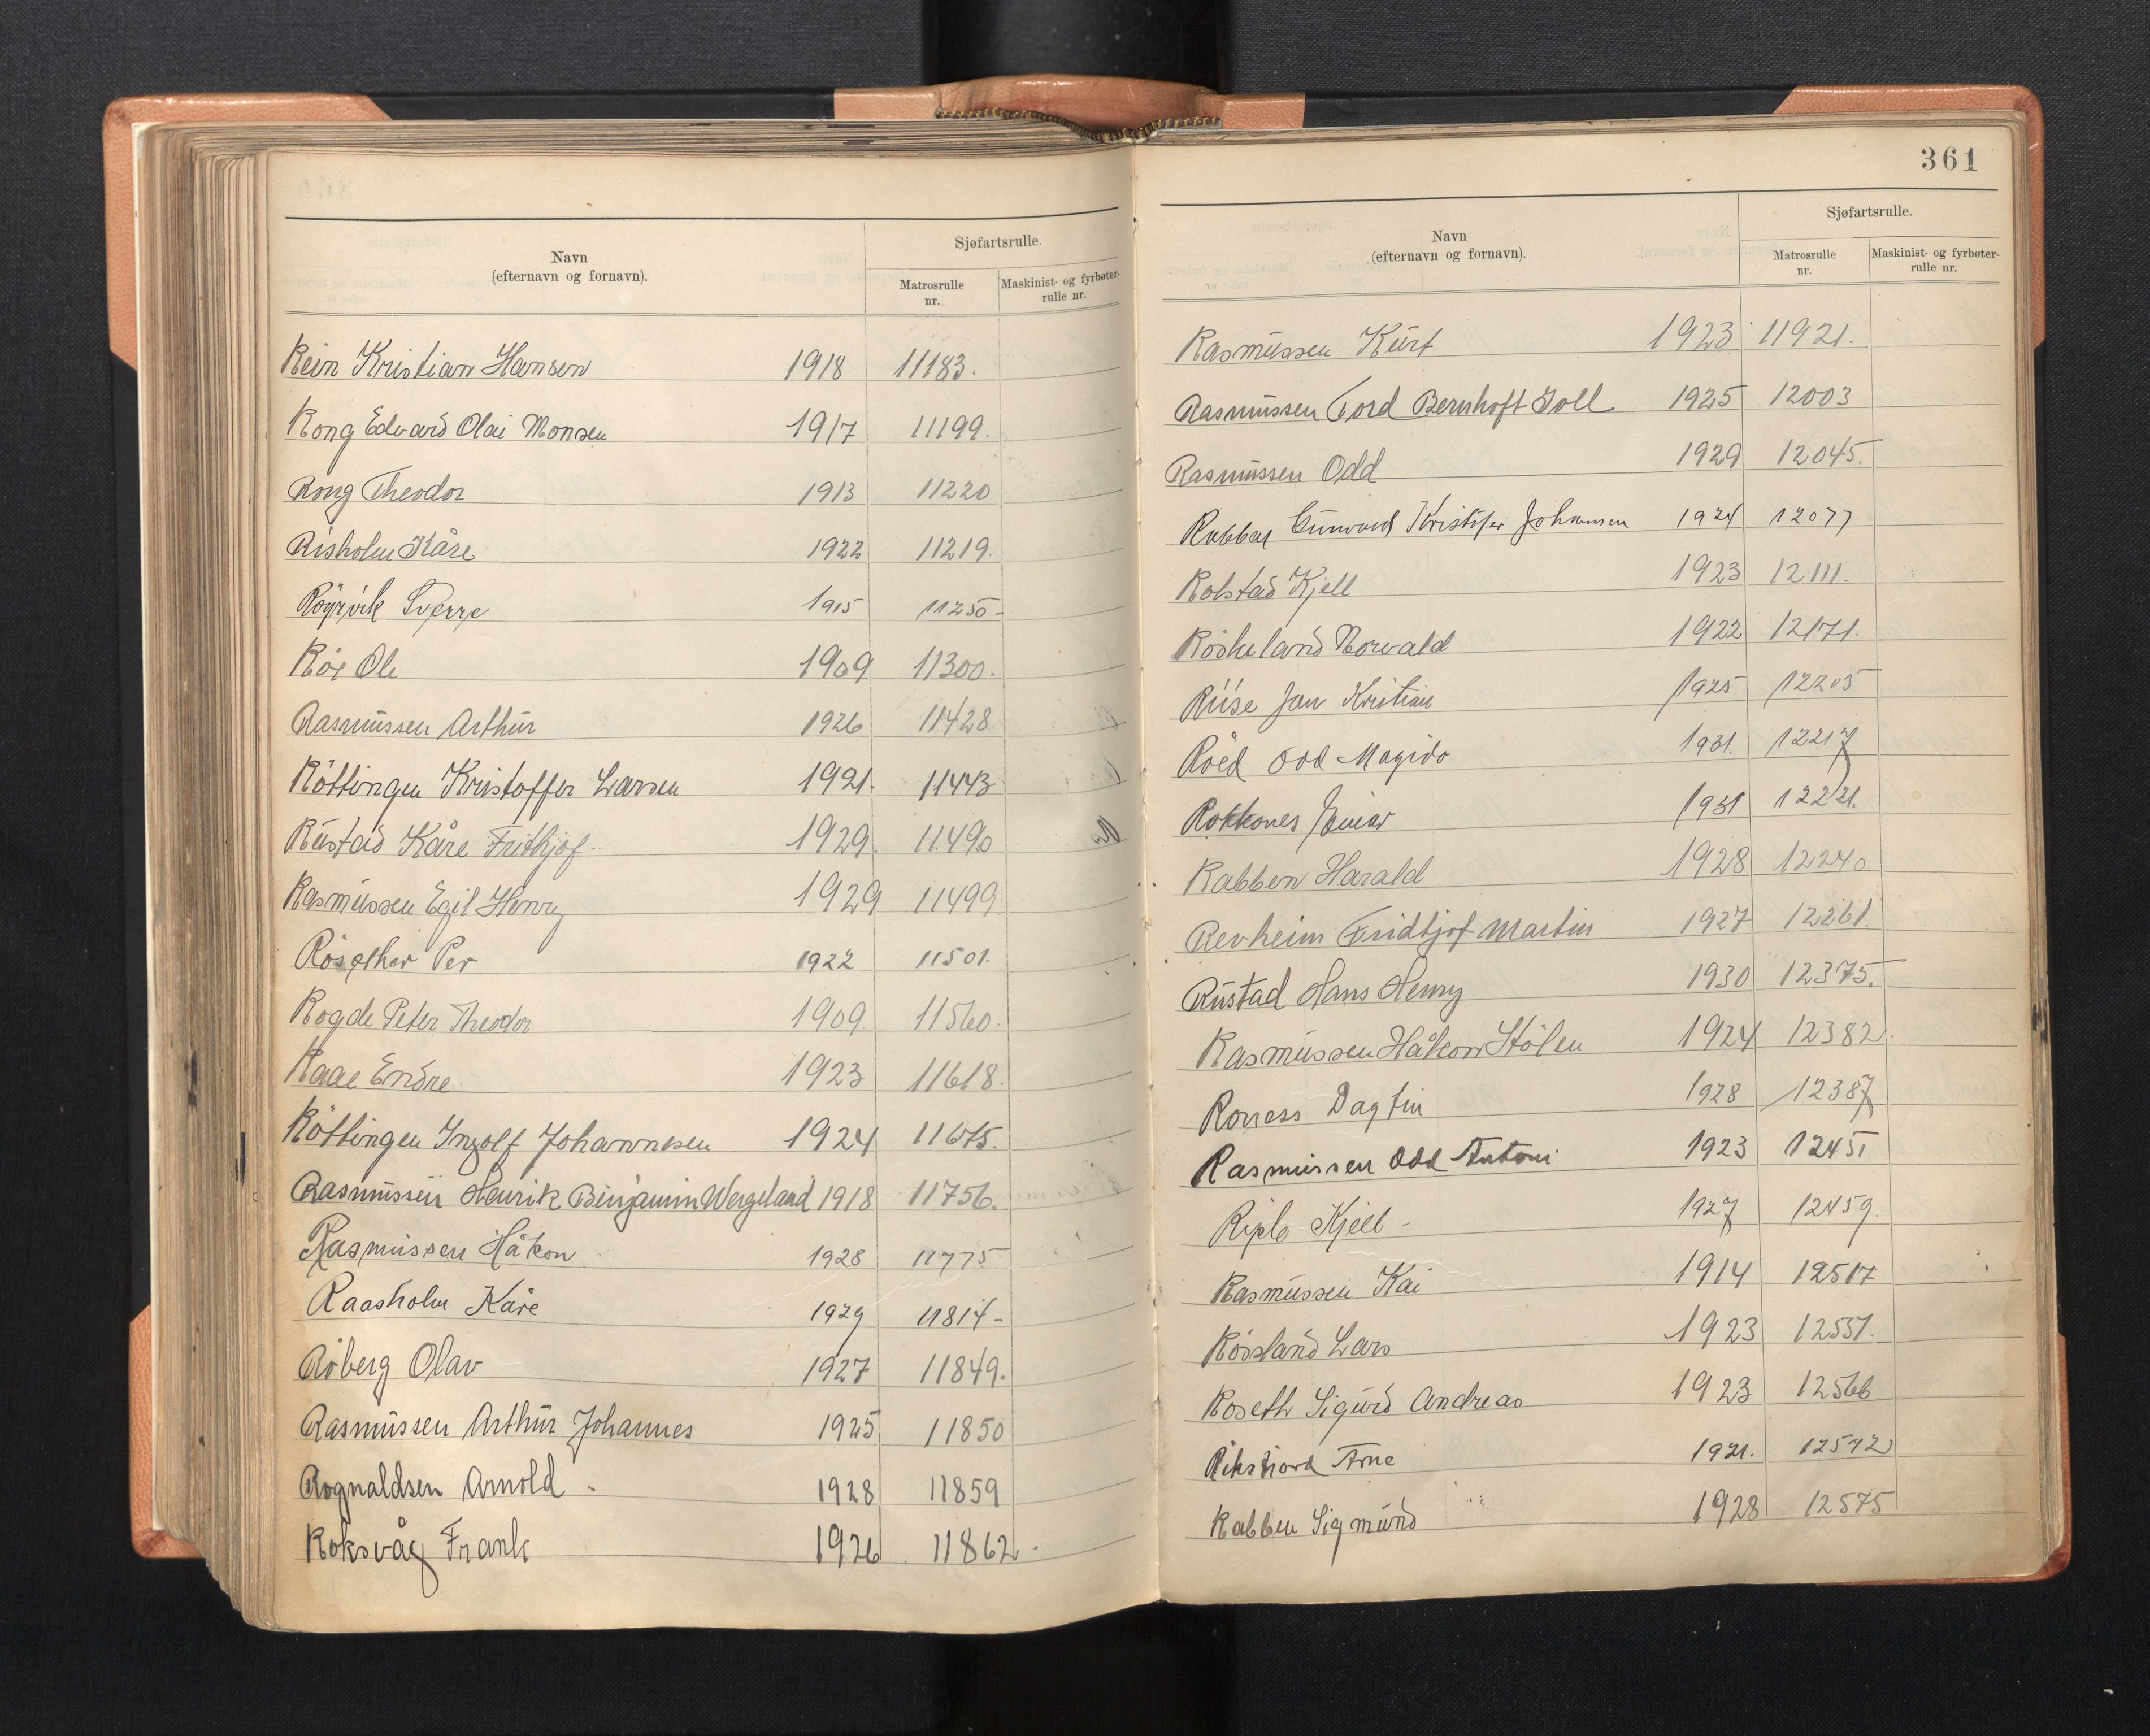 Sjøfartsrulle.
Navn
(efternavn og fornavn).
Matrosrulle
nr.
Maskinist- og fyrbøter-
rulle nr.
Rein Kristian Hansen 1918 11183.
Rong Edvard Olai Monsen 1917 11199.
Rong Theodor 1913 11220
Risholm Kåre 1922 11219.
Röyrvik Sverre 1915 11250-
Röe Ole 1909 11300.
Rasmussen Arthur 1926 11428
Röttingen Kristoffer Larsen 1921. 11443
Rustad Kåre Frithjof 1929. 11490
Rasmussen Egil Henry 1929 11499
Rösæther Per 1922 11501.
Rogde Peter Theodor 1909. 11560.
Raae Endre 1923 11618.
Röttingen Ingolf Johannesen 1924 11675.
Rasmussen Henrik Binjamin Wergeland 1918 11756.
Rasmussen Håkon 1928 11775
Raasholm Kåre 1929 11814-
Röberg Olav 1927 11849.
Rasmussen Arthur Johannes 1925 11850
Rognaldsen Arnold - 1928 11859
Roksvåg Frank 1926 11862.
361
Sjøfartsrulle.
Navn
(efternavn og fornavn).
Matrosrulle
nr.
Maskinist- og fyrbøter-
rulle nr.
Rasmussen Kurt 1923 11921.
Rasmussen Tord Bernhoft Joll 1925 12003
Rasmussen Odd 1929 12045.
Rabben Gunvard Kristofer Johannsen 1924 12077
Rolstad Kjell 1923 12111.
Röskeland Norvald 1922 12171.
Riise Jan Kristian 1925 12205
Röed Odd Magido 1931. 12217
Rokkones Einar 1931 12221.
Rabben Harald 1928 12240
Revheim Fridtjof Martin 1927 12261.
Rustad Hans Henry 1930 12375.
Rasmussen Håkon Stölen 1924 12382.
Roness Dagfin 1928 12387
Rasmussen Odd Antoni 1923 12451
Ripls Kjell - 1927 12459.
Rasmussen Kai 1914 12517
Rössland Lars 1923 12557.
Roseth Sigurd Andreas 1923 12566
Riksfiord Arne 1921. 12572
Rabben Sigmund 1928 12575